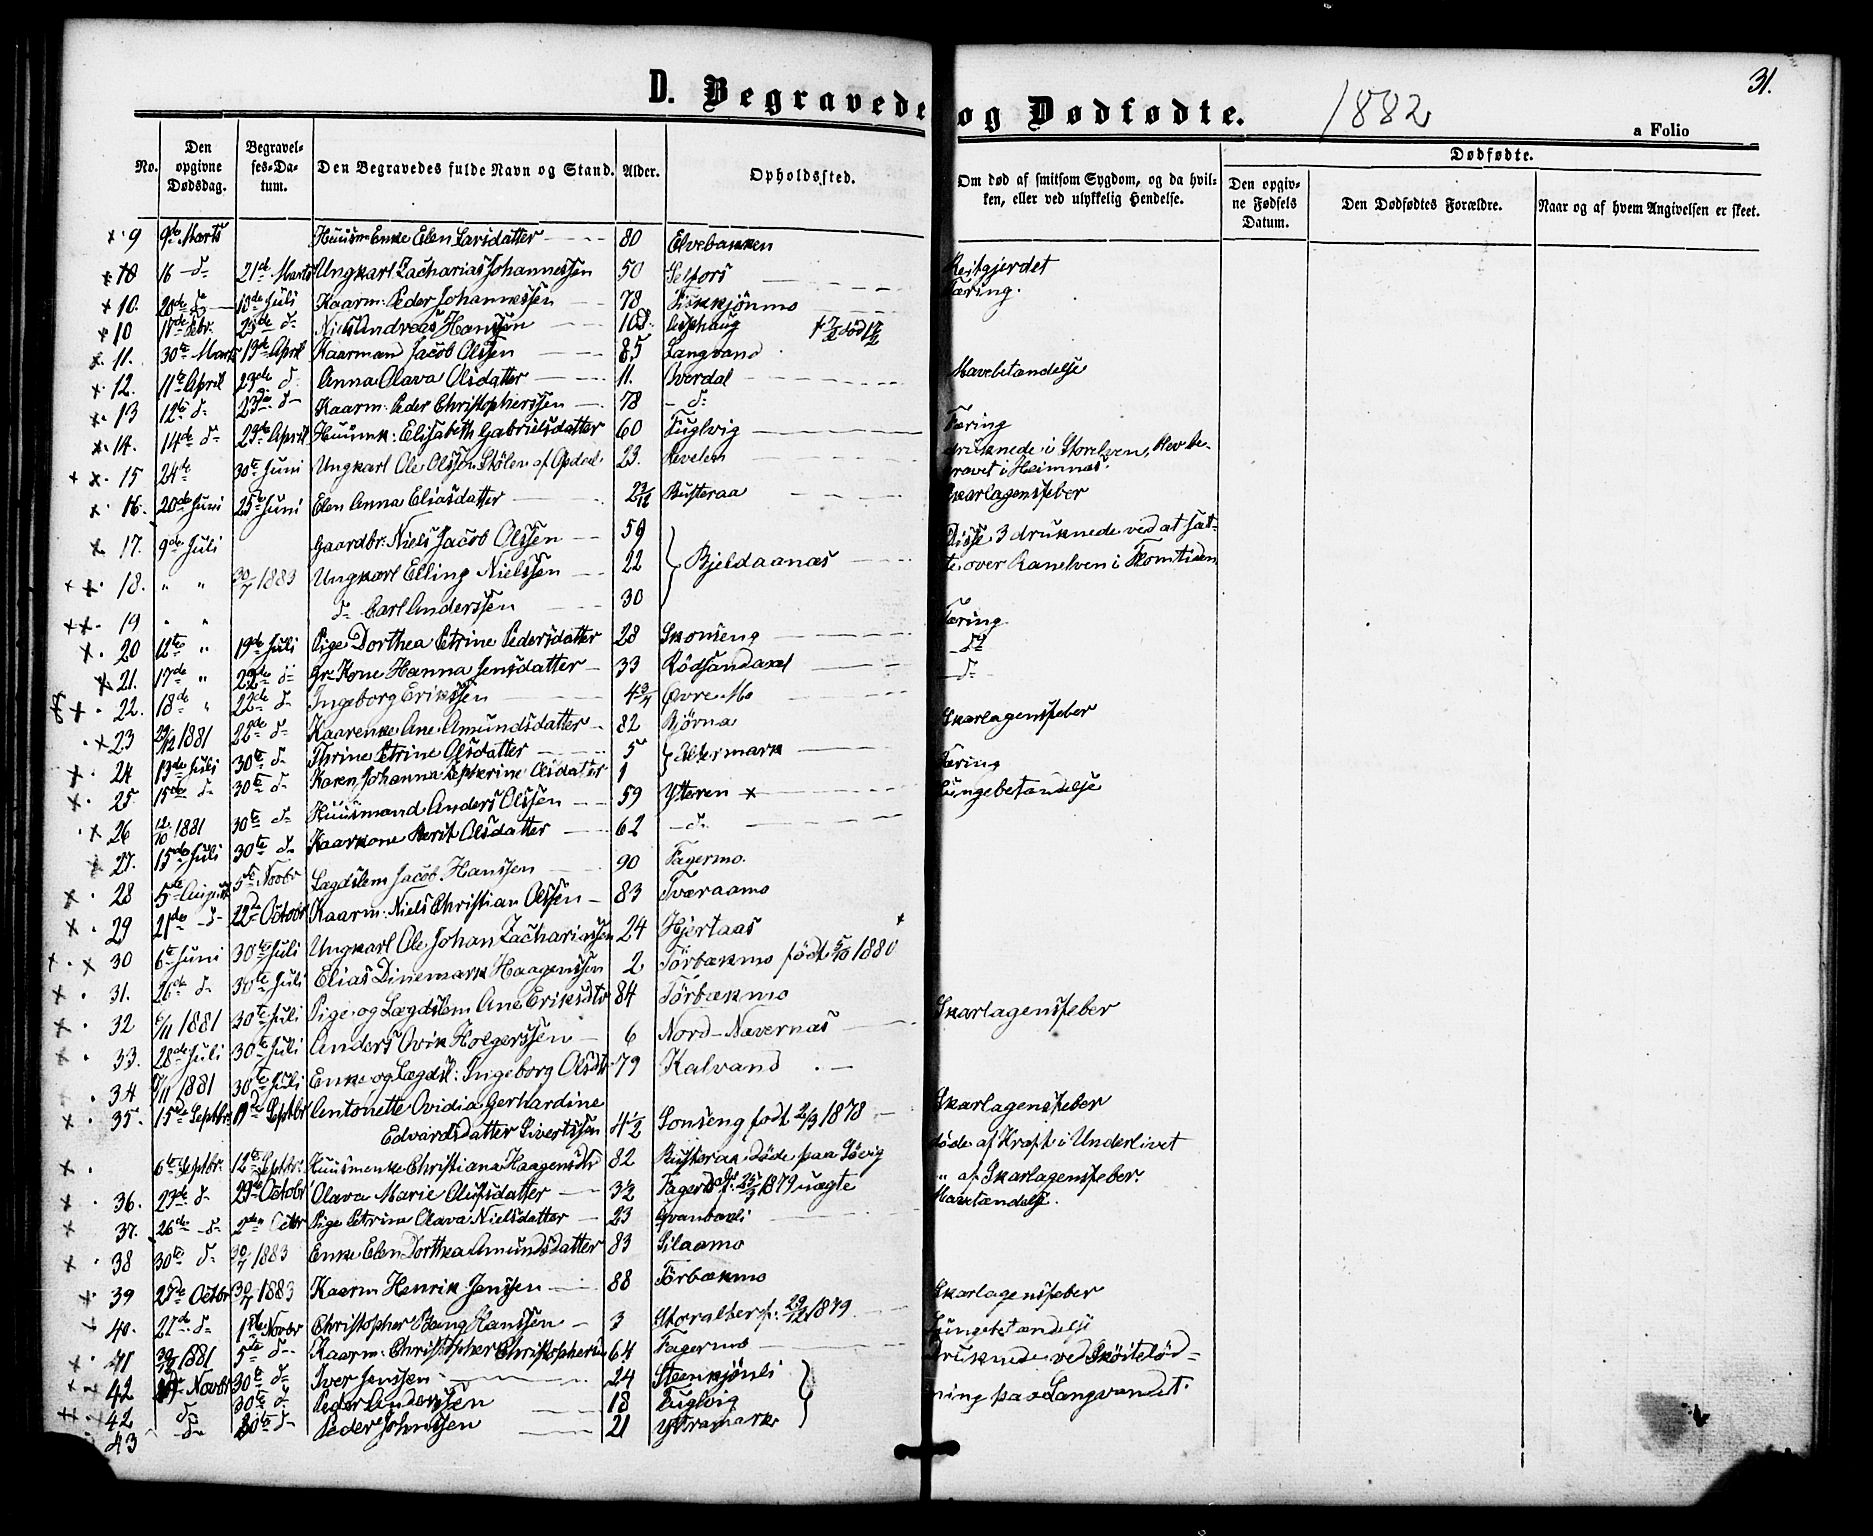 31.
D. Begravede og Dødfødte. 1882
a Folio
No. Den opgivne Dødsdag. Begravelses-Datum. Den Begravedes fulde Navn og Stand. Alder. Opholdssted. Om død af smitsom Sygdom, og da hvilken, eller ved ulykkelig Hendelse. Dødfødte.
Den opgivne Fødsels Datum. Den Dødfødtes Forældre. Naar og af hvem Angivelsen er skeet.
9 9de Marts Huusm: Enke Elen Larsdatter 80 Elvebakken
18 16 d 21de Marts Ungkarl Zacharias Johannessen 50 Selfors Reitgjerdet
10. 28de d 18de Juli Kaarm: Peder Johannessen 78 Tæring.
10 Febr. 25de d Niels Andreas Hanssen
11. 30te Marts 13de April Kaarmand Jacob Olssen 85 Langvand
12. 11te April 23de d Anna Olava Olsdatter 11. Overdal Mavebetændelse
13 12te d 23de d Kaarm: Peder Christopherssen 78 d
14. 14de d 23de April Huusmk: Elisabeth Gabrielsdatter 60 Fuglvig Tæring
15 24de 30te Juni Ungkarl Ole Olssen Stølen af Opdal 23. Revelen druknede i Storelven, blev begravet i Heimnæs.
16. 20de Juni 25de Juni Elen Anna Eliasdatter Rusteraa Skarlagensfeber
17. 9de Juli Gaardbr: Niels Jacob Olssen 59
18. " " 30/7 1883 Ungkarl Elling Nielssen 22 Bjeldaanæs Disse 3 druknede ved at sætte over Ranelven i Flomtiden
19 " " d Carl Anderssen 30
20 12te " 19de Juli Pige Dorthea Petrine Pedersdatter 28 Skonseng Tæring
21. 17de " 22de d Gr: Kone Hanna Jensdatter 33 Rødsandaxl d
22. 18de " 22de d Ingeborg Erikssen Øvre Mo d
23 1881 22de d Kaarenke Ane Amundsdatter 82 Bjørna Skarlagensfeber
24 13de Juli 30te d Thrine Petrine Olsdatter 5 Altermark
25 15de d 30te d Karen Johanna Olsdatter 1 Tæring
26 12/10 1881 30te d Huusmand Anders Olssen 59 Ytteren Lungebetændelse
27. 15de Juli 30te d Kaarkone Berit Olsdatter 62 d
28 5te August 5te Novbr Lægdslem Jacob Hanssen 90 Fagermo.
29 21de d 22de Octobr Kaarm: Niels Christian Olssen 83 Tværaamo
30 6te Juni 30te Juli Ungkarl Ole Johan Zachariassen 24 Hjertaas
31. 26de d 30te Juli Elias Dinemark Haagenssen 2 Tørbækmo født 5/9 1880
32 6/11 1881 30te Juli Pige og Lægdslem Ane Eriksdtr 84 Tørbækmo
33. 28de Juli 30te Juli Anders Ovik Holgerssen 6 Nord-Nævernæs Skarlagensfeber
34 1881 30te Juli Enke og Lægdsl: Ingeborg Olsdtr 79 Kalvand
35. 15de Septbr. Septbr Antonette Ovidia Gerhardine
Edvardsdatter Sivertssen 4½ Sonseng født 2/9 1878 Skarlagensfeber
6te Septbr. 12te Septbr. Huusmenke Christiana Haagensdtr 82 Rusteraa døde paa Løvig døde af Kræft i Underlivet
36. 23de d 29de Octobr Olava Marie Olufsdatter 3½ 1879 uægte " af Skarlagensfeber.
37. 26de d 2den Octbr Pige Petrine Olava Nielsdatter 23
38 30te d 30/7 1883 Enke Elen Dorthea Amundsdatter 83 Silaamo
39 27de Octbr 30/7 1883 Kaarm Henrik Jenssen 88 Tørbækmo
40. 27de d Novbr Christopher Bang Hanssen 3 Storalter f: 29/12 1879 Skarlagensfeber
41 1881 5te d Kaarm: Christopher 64 Fagermo Lungebetændelse
42 Novbr 30te d Iver Jenssen 24 Steenkjønli Druknede ved Skøiteløb-
42 d 30te d Peder Anderssen 18 Fuglvig ning paa Langvandet.
43 d 30te d Peder Johnssen 21 Ytramark